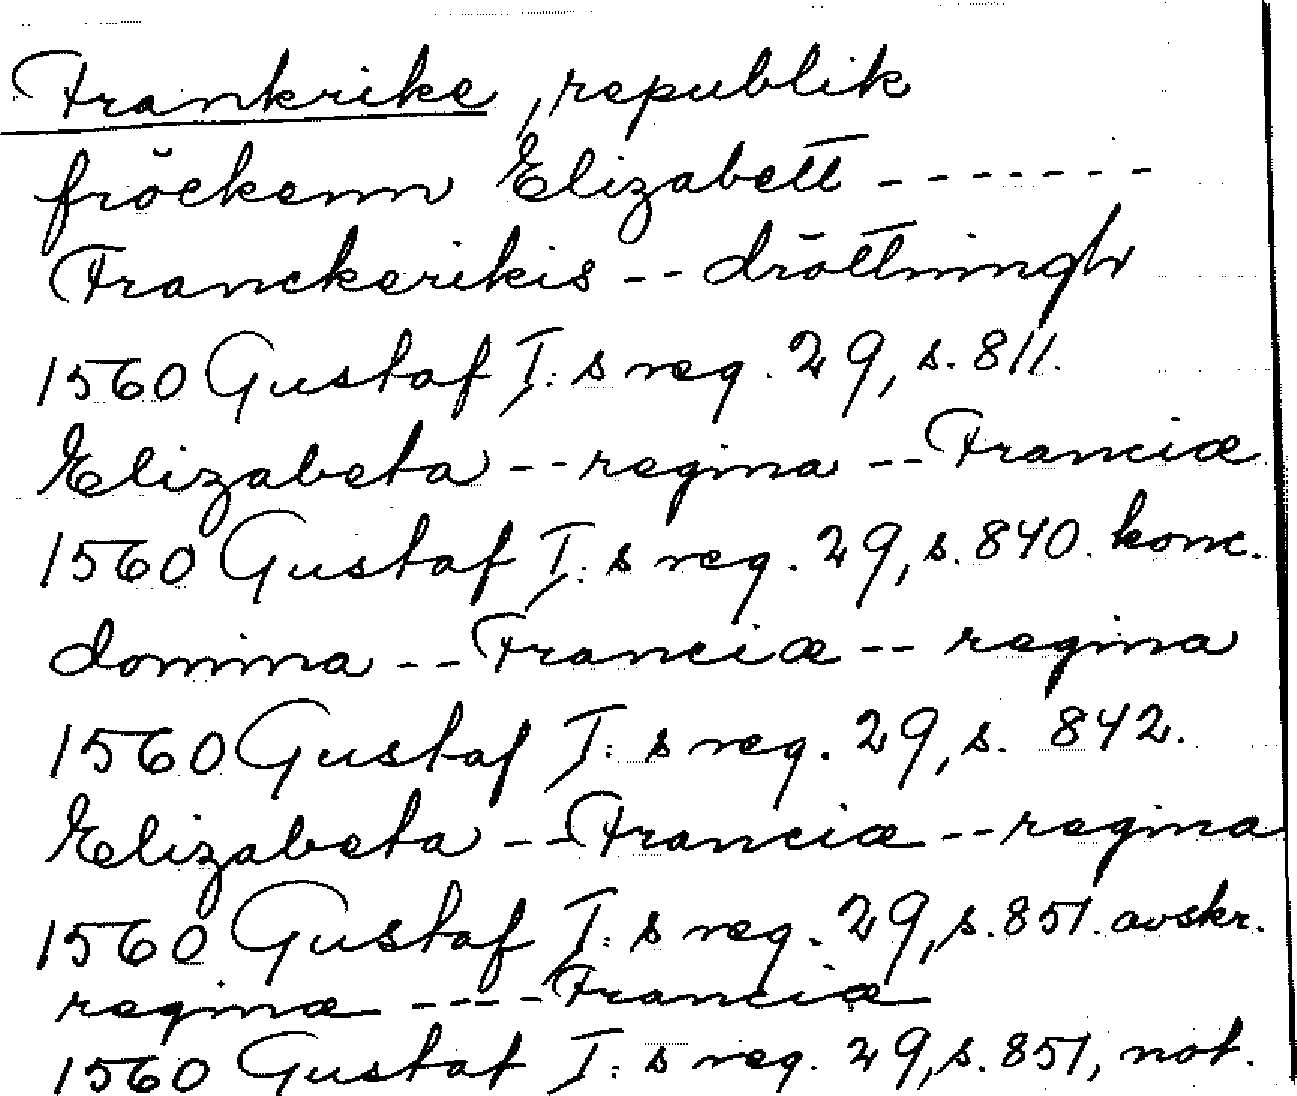 Frankrike, republik
fröckenn Elizabett -------
Franckerikis -- dröttningh
1560 Gustaf I:s reg. 29, s. 811.
Elizabeta -- regina -- Franciæ
1560 Gustaf I:s reg. 29, s. 840. konc.
domina -- Franciæ -- regina
1560 Gustaf I:s reg. 29, s. 842.
Elizabeta -- Franciæ -- regina
1560 Gustaf I:s reg. 29, s. 851. avskr.
reginæ ---- Franciæ
1560 Gustaf I:s reg. 29, s. 851, not.